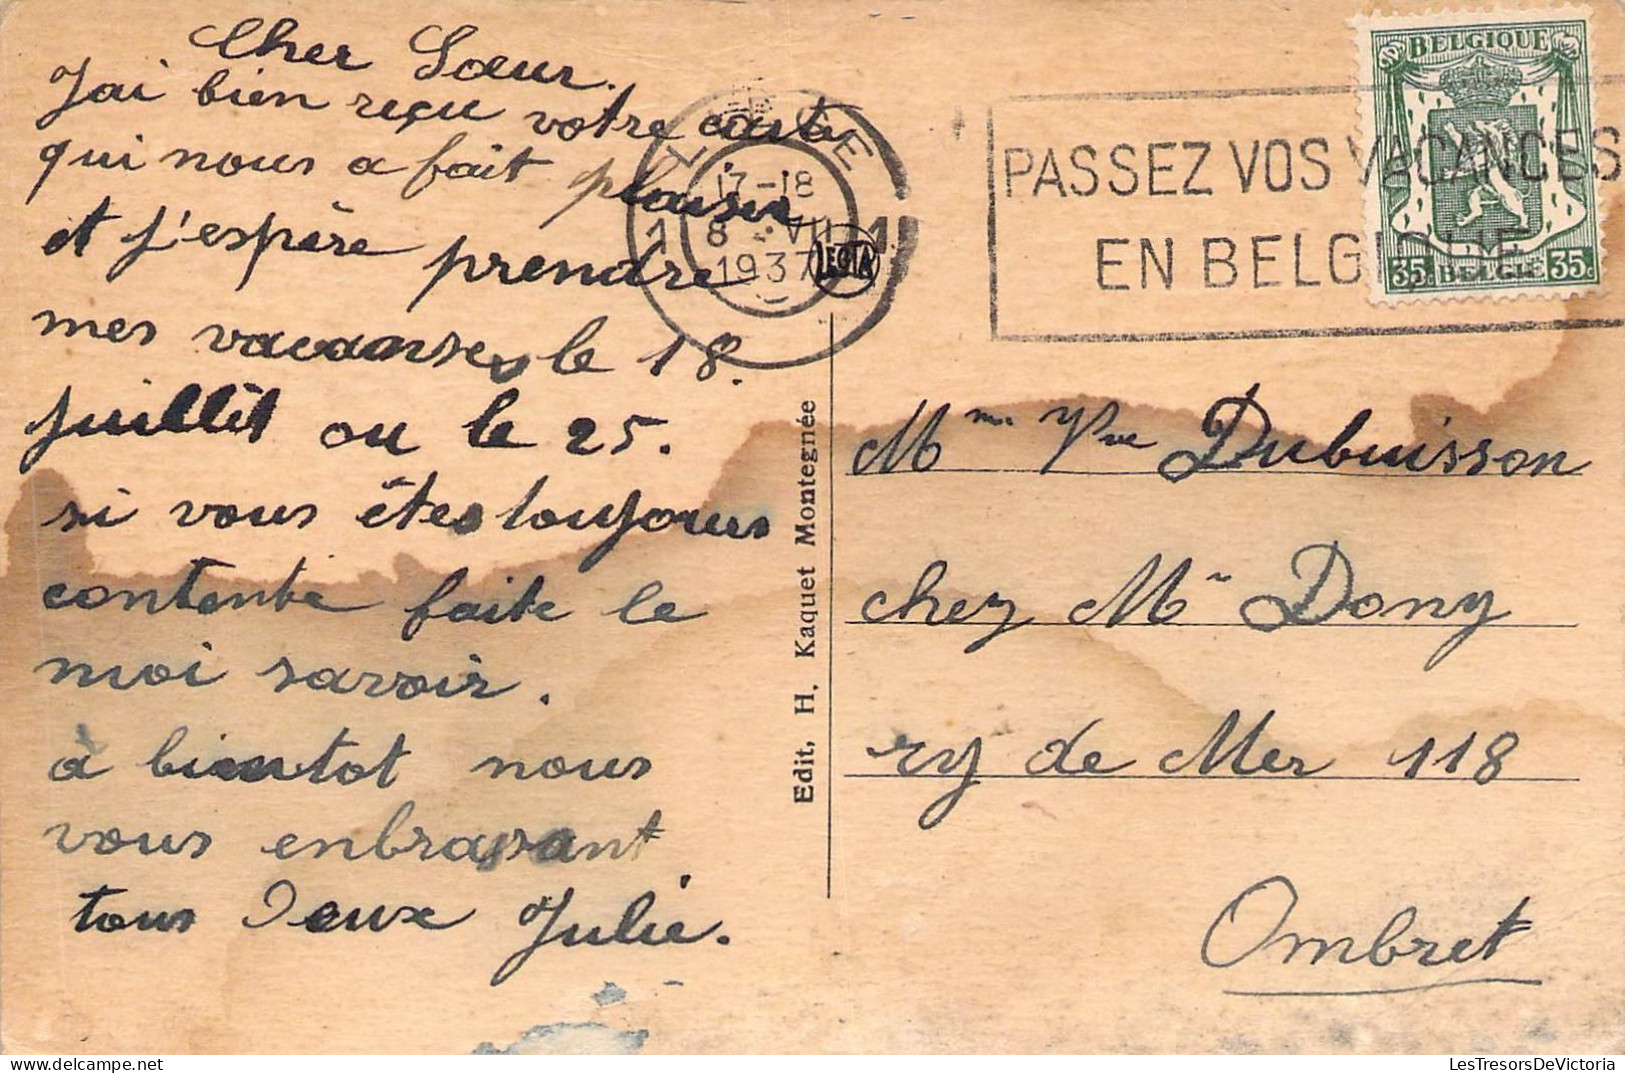 Cher Sœur.
J'ai bien reçu votre carte
qui nous a fait plaisir
et j'espère prendre
mes vacanses le 18.
juillèt ou le 25.
si vous êtes toujours
contente faite le
moi savoir.
à bientot nous
vous enbrasant
tous Deux Julie.
LIEGE
17-18
8 VII
1937
1 1
LEGIA
PASSEZ VOS VACANCES
EN BELGIQUE
BELGIQUE
35c BELGIË 35c
Edit, H. Kaquet Montegnée
Mme Vve Dubuisson
chez Mr Dony
ry de Mer 118
Ombret
LesTresorsDeVictoria